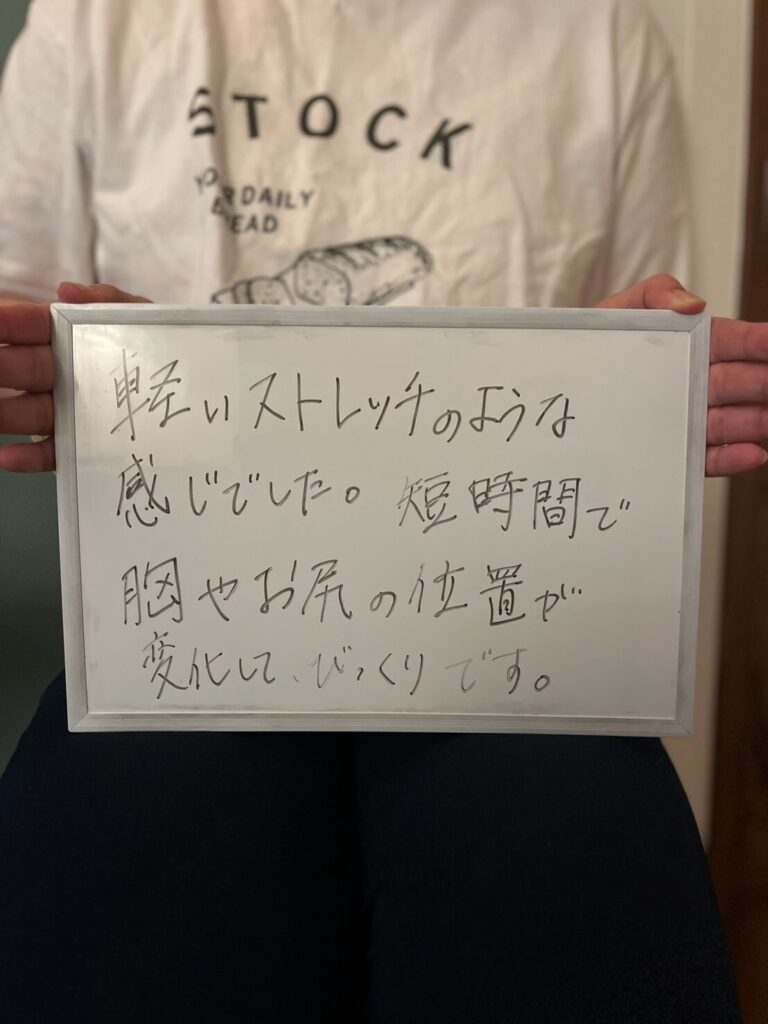 STOCK
YOUR DAILY
BREAD
軽いストレッチのような
感じでした。短時間で
胸やお尻の位置が
変化して、びっくりです。